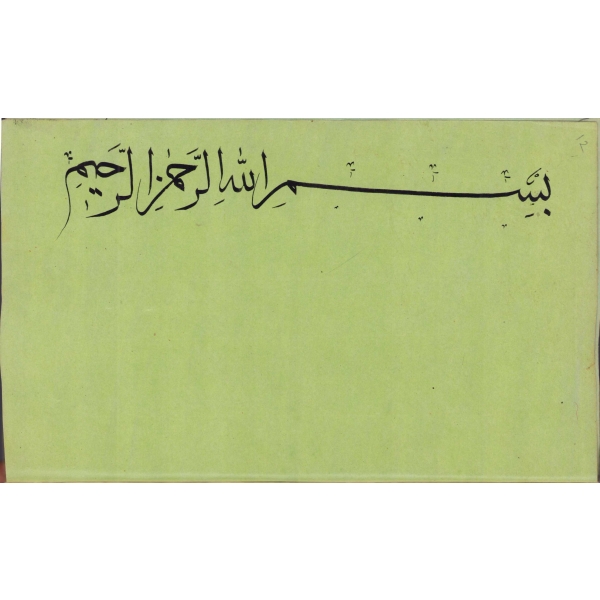 بِسْمِ اللهِ الرَّحْمٰنِ الرَّحِيمِ
12